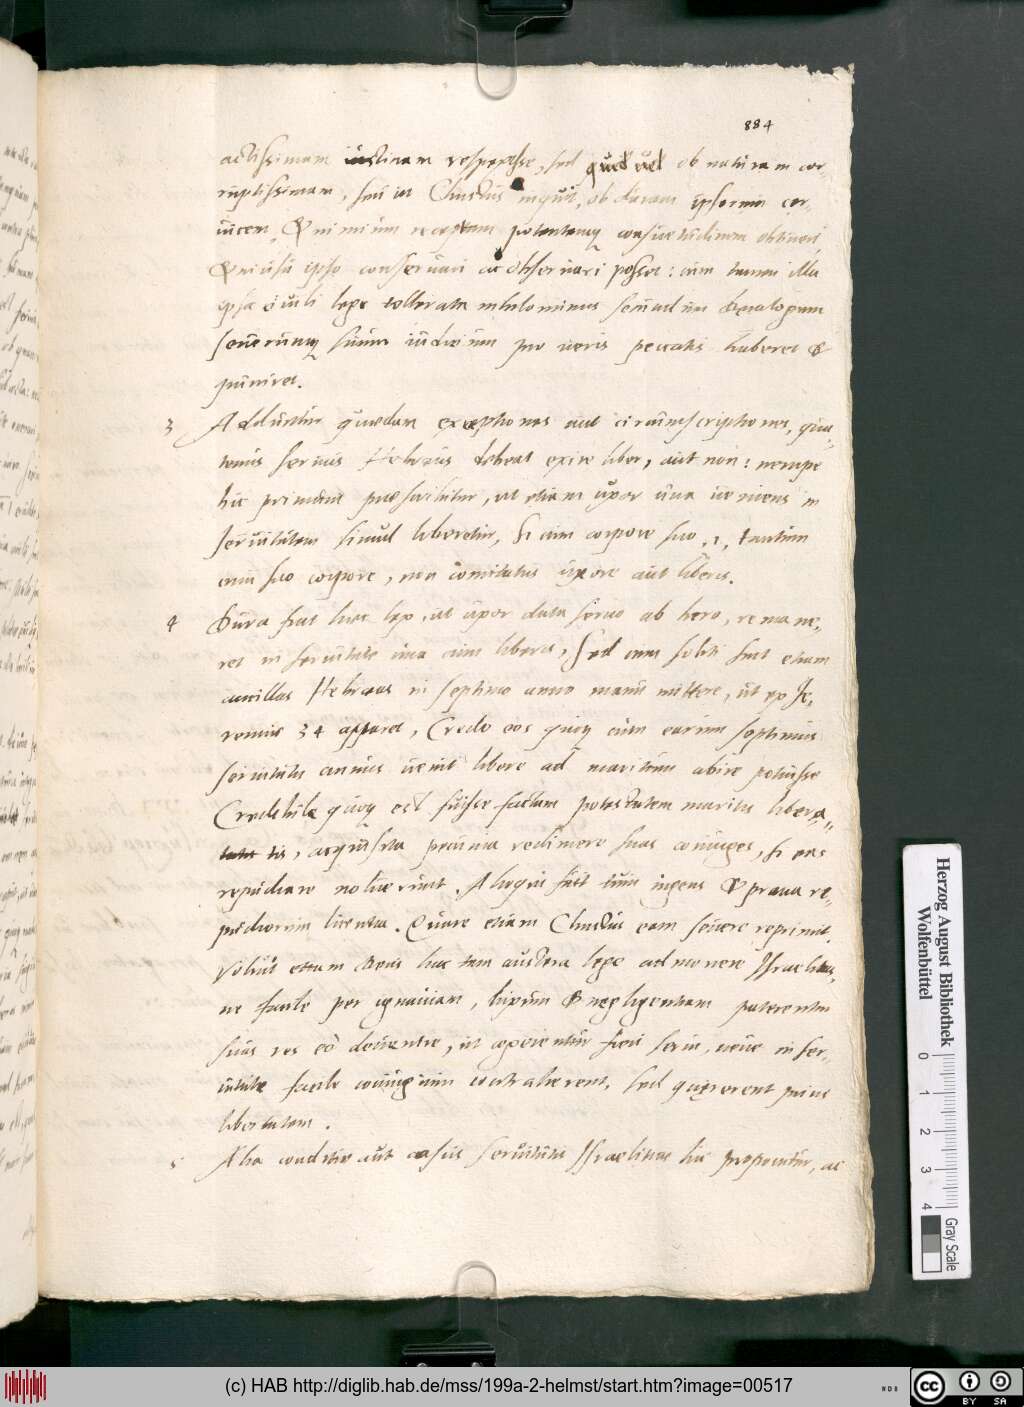 884
actissimam iusticiam respexisse, sed quod vel ob naturam cor-
ruptissimam, seu ut Christus inquit, ob duram ipsorum cer-
uicem, & nimium receptam potentemq consuetudinem obtineri,
& ni usu ipso conseruari ac obseruari posset: cum tamen illa
ipsa ciuili lege tollerata nihilominus secundum decalogum
seuerumq suum iudicium pro ueris peccatis haberet &
puniret.
3 Adduntur quaedam exceptiones aut circumscriptiones, qua-
tenus seruus Hebraeus debeat exire liber, aut non: nempe
hic primum praescribitur, ut etiam uxor una ueniens in
seruitutem simul liberetur, si cum corpore suo .i. tantum
cum suo corpore, non comitatus uxore aut liberis.
4 Dura fuit haec lex, ut uxor data seruo ab hero, remane-
ret in seruitute una cum liberis, Sed cum soliti sint etiam
ancillas Hebraeas in septimo anno manu mittere, ut ex Je-
remiae 34 apparet, Credo eos quoq cum earum septimus
seruitutis annus uenit libere ad maritum abire potuisse
Credibile quoq est fuisse factam potestatem maritis libera-
tis, acquisita pecunia redimere suas coniuges, si eas
repudiare noluerunt. Alioqui fuit tum ingens & praua re-
pudiorum licentia. Quare etiam Christus eam seuere reprimit.
Voluit etiam Deus hac tam austera lege admonere Israelitas,
ne facile per ignauiam, luxum & negligentiam paterentur
suas res eo deuenire, ut cogerentur fieri serui, neue in ser-
uitute facile coniugium contraherent, sed quererent prius
libertatem.
5 Alia conditio aut casus seruitutis Israeliticae hic proponitur, ac
Herzog August Bibliothek
Wolfenbüttel
0 1 2 3 4
Gray Scale
(c) HAB http://diglib.hab.de/mss/199a-2-helmst/start.htm?image=00517
cc BY SA